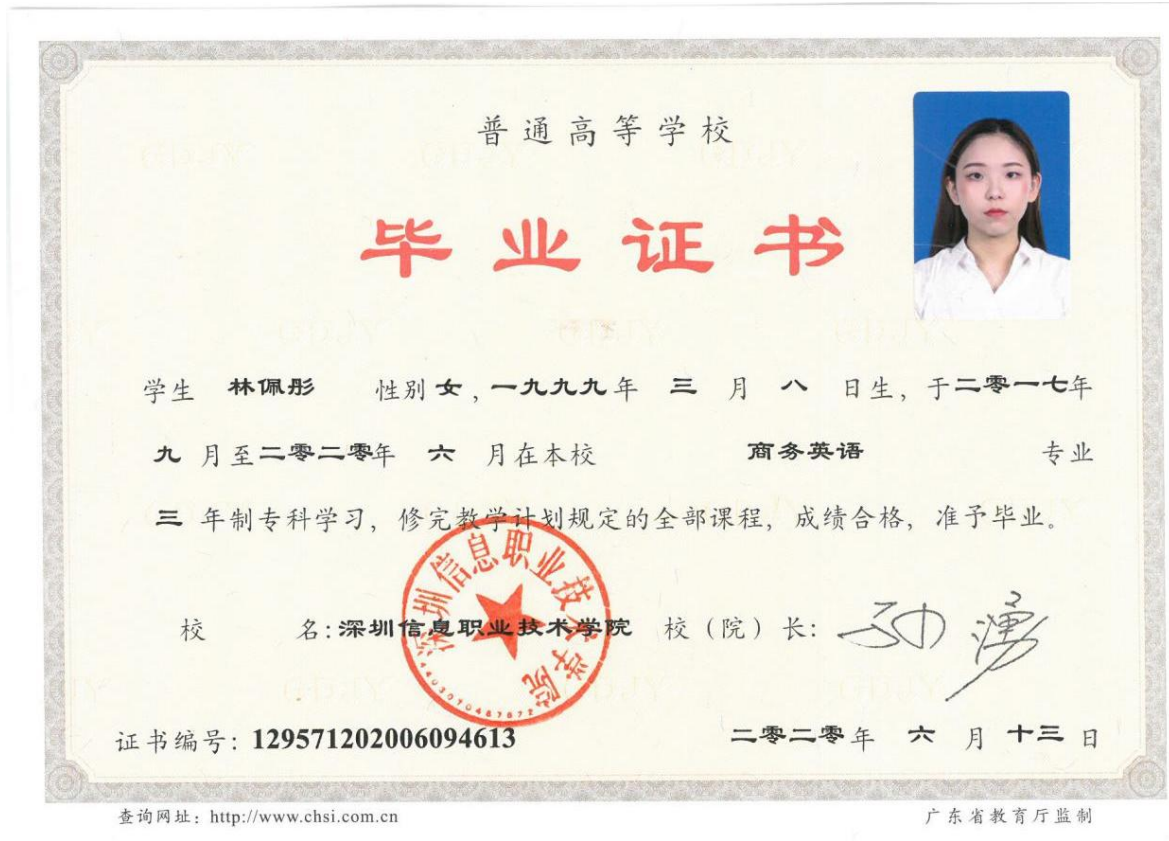 普通高等学校
毕业证书
学生 林佩彤 性别 女，一九九九年 三 月 八 日生，于二零一七年
九 月至二零二零年 六 月在本校 商务英语 专业
三 年制专科学习，修完教学计划规定的全部课程，成绩合格，准予毕业。
深圳信息职业技术学院
校 名：深圳信息职业技术学院 校（院）长：
证书编号：129571202006094613 二零二零年 六 月 十三 日
查询网址：http://www.chsi.com.cn 广东省教育厅监制